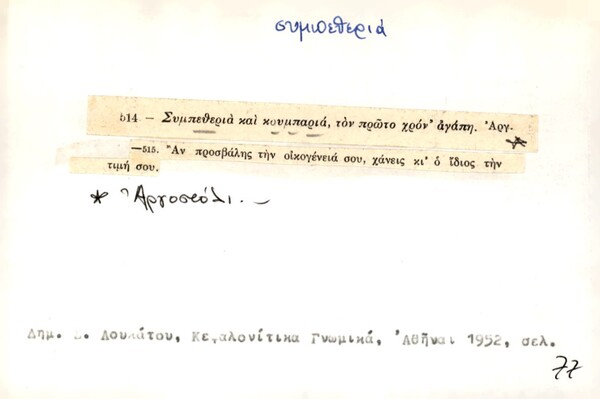 συμπεθεριά
514 — Συμπεθεριὰ καὶ κουμπαριά, τὸν πρῶτο χρόν' ἀγάπη. Ἀργ-
—515. Ἂν προσβάλῃς τὴν οἰκογένειά σου, χάνεις κι' ὁ ἴδιος τὴν
τιμή σου.
* Ἀργοστόλι.—
Δημ. Σ. Λουκάτου, Κεφαλονίτικα Γνωμικά, Ἀθῆναι 1952, σελ.
77